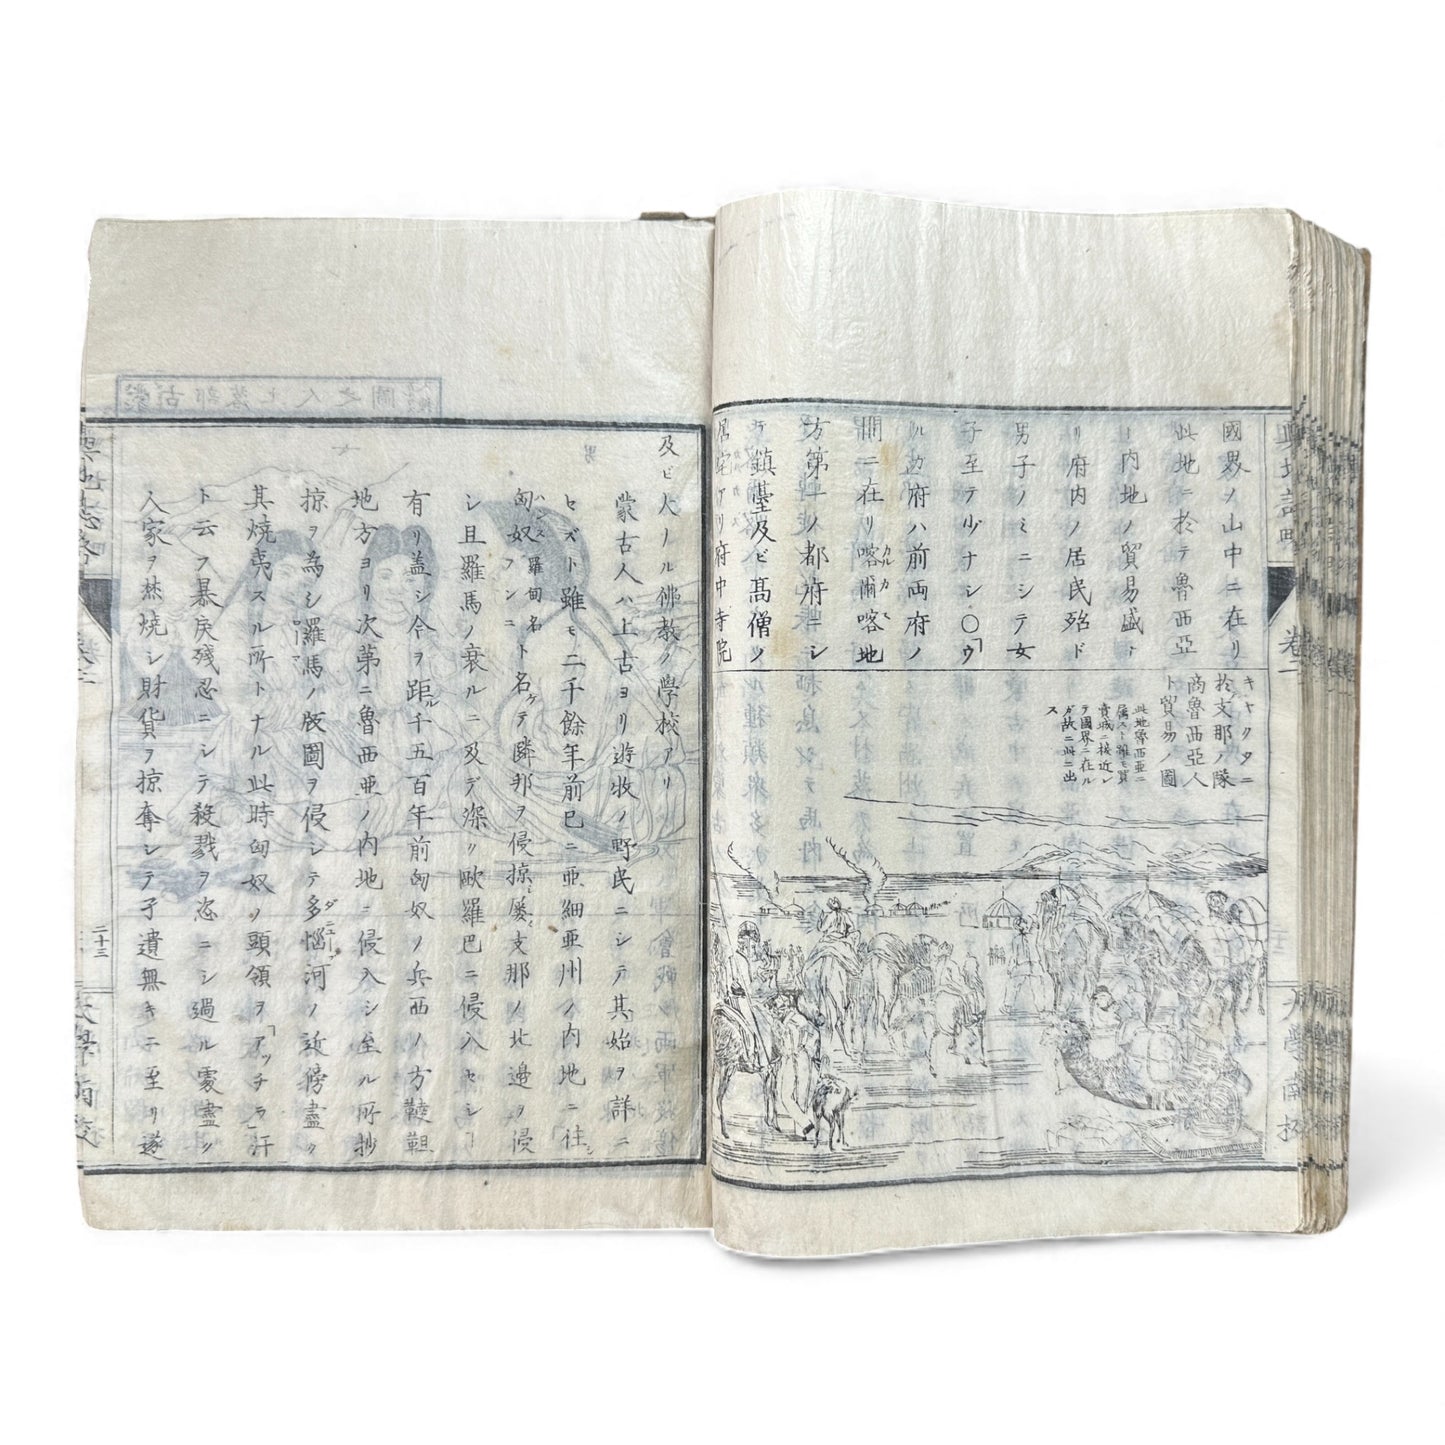 國界ノ山中ニ在リ
此地ニ於テ魯西亞
ト内地ノ貿易盛ニ
リ府内ノ居民殆ド
男子ノミニシテ女
子至テ少ナシ〇「ウ
ルガ府ハ前両府ノ
間ニ在リ喀爾喀地
方第一ノ都府ニシ
テ鎮臺及ビ髙僧ノ
居宅アリ府中寺院
キヤクタニ
於支那ノ隊
商魯西亞人
ト貿易ノ圖
此地魯西亜ニ
属スト雖モ買
賣城ニ接近シ
テ國界ニ在ル
ガ故ニ此ニ出
ス
輿地誌略
卷二
大學南校
及ビ大ナル佛教ノ學校アリ
蒙古人ハ上古ヨリ遊牧ノ野民ニシテ其始ヲ詳ニ
セズト雖モ二千餘年前巳ニ亜細亜州ノ内地ニ往シ
匈奴ハンス羅甸名フンニト名ケテ隣邦ヲ侵掠シ屡支那ノ北邊ヲ侵
シ且羅馬ノ衰ルニ及デ深ク歐羅巴ニ侵入セシ「
有リ盖シ今ヲ距ル千五百年前匈奴ノ兵西ノ方韃靼
地方ヨリ次第ニ魯西亜ノ内地ニ侵入シ至ル所抄
掠ヲ為シ羅馬ノ版圖ヲ侵シテ多惱河ノ近傍盡ク
其焼夷スル所トナル此時匈奴ノ頭領ヲ「アッチラ」汗
ト云フ暴戻殘忍ニシテ殺戮ヲ恣ニシ過ル處盡ク
人家ヲ焚焼シ財貨ヲ掠奪シテ孑遺無キニ至リ遂
輿地誌略
卷二
二十三
大學南校